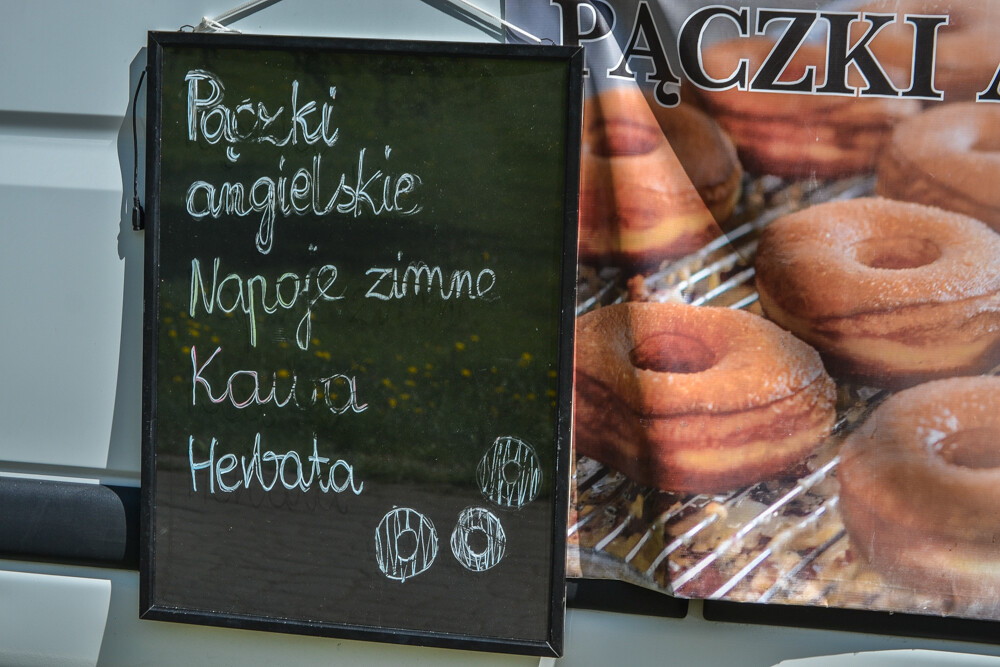 Pączki
angielskie
Napoje zimne
Kawa
Herbata
PĄCZKI A